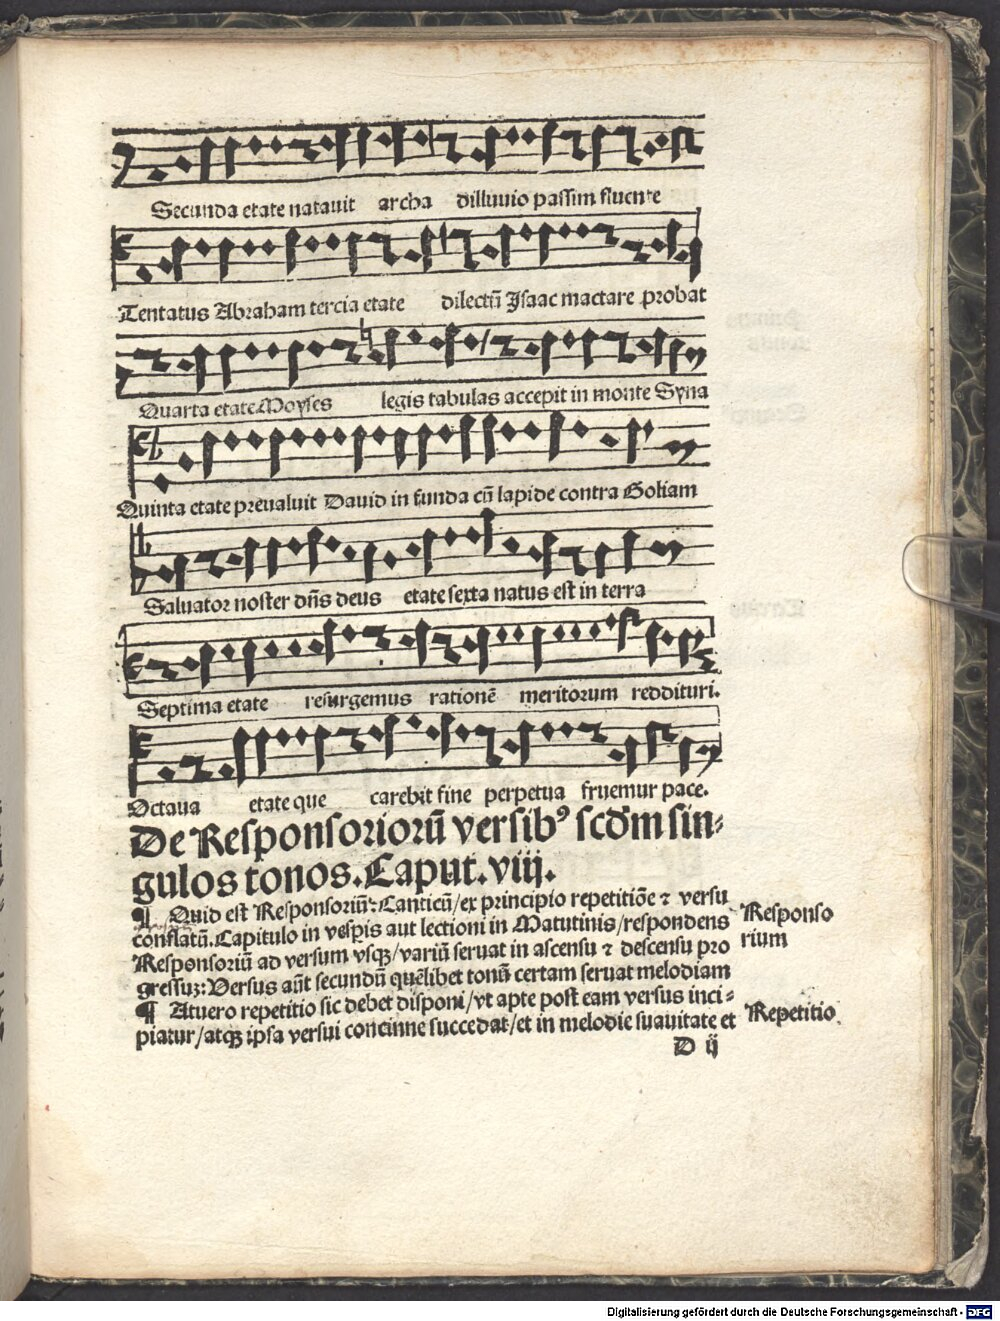 Secunda etate natauit archa dilluuio passim fluente
Tentatus Abraham tercia etate dilectū Isaac mactare probat
Quarta etate Moyses legis tabulas accepit in monte Syna
Quinta etate preualuit Dauid in funda cū lapide contra Goliam
Saluator noster dñs deus etate sexta natus est in terra
Septima etate resurgemus rationē meritorum reddituri.
Octaua etate que carebit fine perpetua fruemur pace.
De Responsoriorū versibꝰ scđm sin-
gulos tonos. Caput. viij.
¶ Quid est Responsoriū: Canticū/ex principio repetitiōe ⁊ versu
conflatū. Capitulo in vesꝑis aut lectioni in Matutinis/respondens
Responsoriū ad versum vsqꝫ/variū seruat in ascensu ⁊ descensu pro
gressuꝫ: Versus aūt secundū quēlibet tonū certam seruat melodiam
Responso
rium
¶ At vero repetitio sic debet disponi/vt apte post eam versus inci-
piatur/atqꝫ ipsa versui concinne succedat/et in melodie suauitate et
Repetitio.
D ij
Digitalisierung gefördert durch die Deutsche Forschungsgemeinschaft - DFG